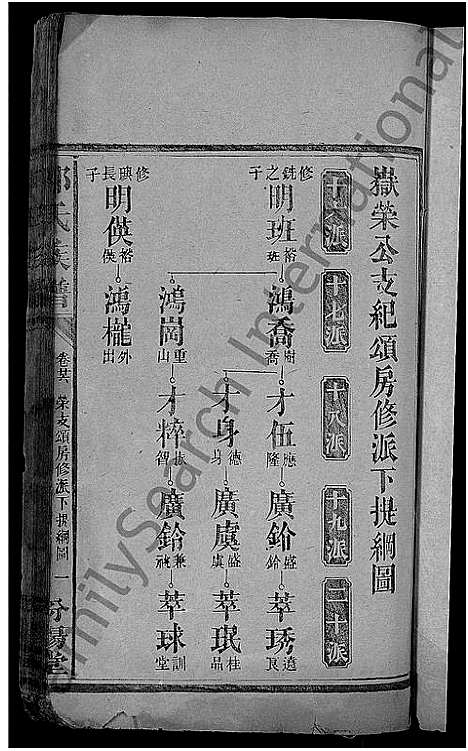 嶽榮公支紀頌房修派下提綱圖
十六派 十七派 十八派 十九派 二十派
修銑之子 明班 裕班 鴻喬 樹喬 才伍 應隆 廣鈐 盛鈐 萃琇 遠良
才身 德身 廣虞 盛虞 萃珉 桂品
鴻崗 重山 才粹 振智 廣鈴 兼 萃球 訓堂
修㬎長子 明僙 裕僙 鴻櫳 外出
氏族譜 卷廿六 榮支頌房修派下提綱圖 一 汾陽堂
FamilySearch International